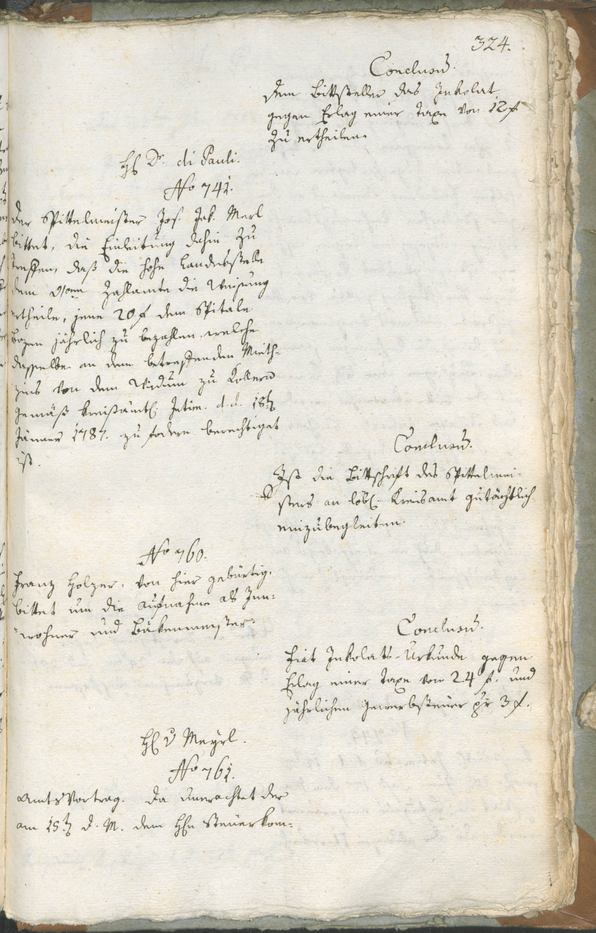 324.
Conclusum.
Dem Bittsteller das Inkolat
gegen Erlag einer Taxe von 12 f
zu ertheilen.
H. Dr. di Pauli.
No 741.
Der Spittelmeister Jos. Jak. Merl
bittet, die Einleitung dahin zu
treffen, daß die hohe Landesstelle
dem Zahlamte die Weisung
ertheile, jene 20 f dem Spitale
Bozen jährlich zu bezahlen, welche
dasselbe an dem betreffenden Mieth-
zins von dem Widum zu
gemäß kreisämtl. Intim. d. d. 18t
Jänner 1787. zu fodern berechtiget
ist.
Conclusum.
Ist die Bittschrift des Spittelmei-
sters an löbl. Kreisamt gutächtlich
einzubegleiten.
No 760.
Franz Holzer, von hier gebürtig,
bittet um die Aufnahme als Inn-
wohner und Bäkenmeister.
Conclusum.
Fiat Inkolats-Urkunde gegen
Erlag einer Taxe von 24 f. und
jährlichen Gewerbsteuer pr 3 f.
H. v Mayrl.
No 761.
Amtsvortrag. Da unerachtet der
am 15t d. M. dem Hhn Steuerkom-